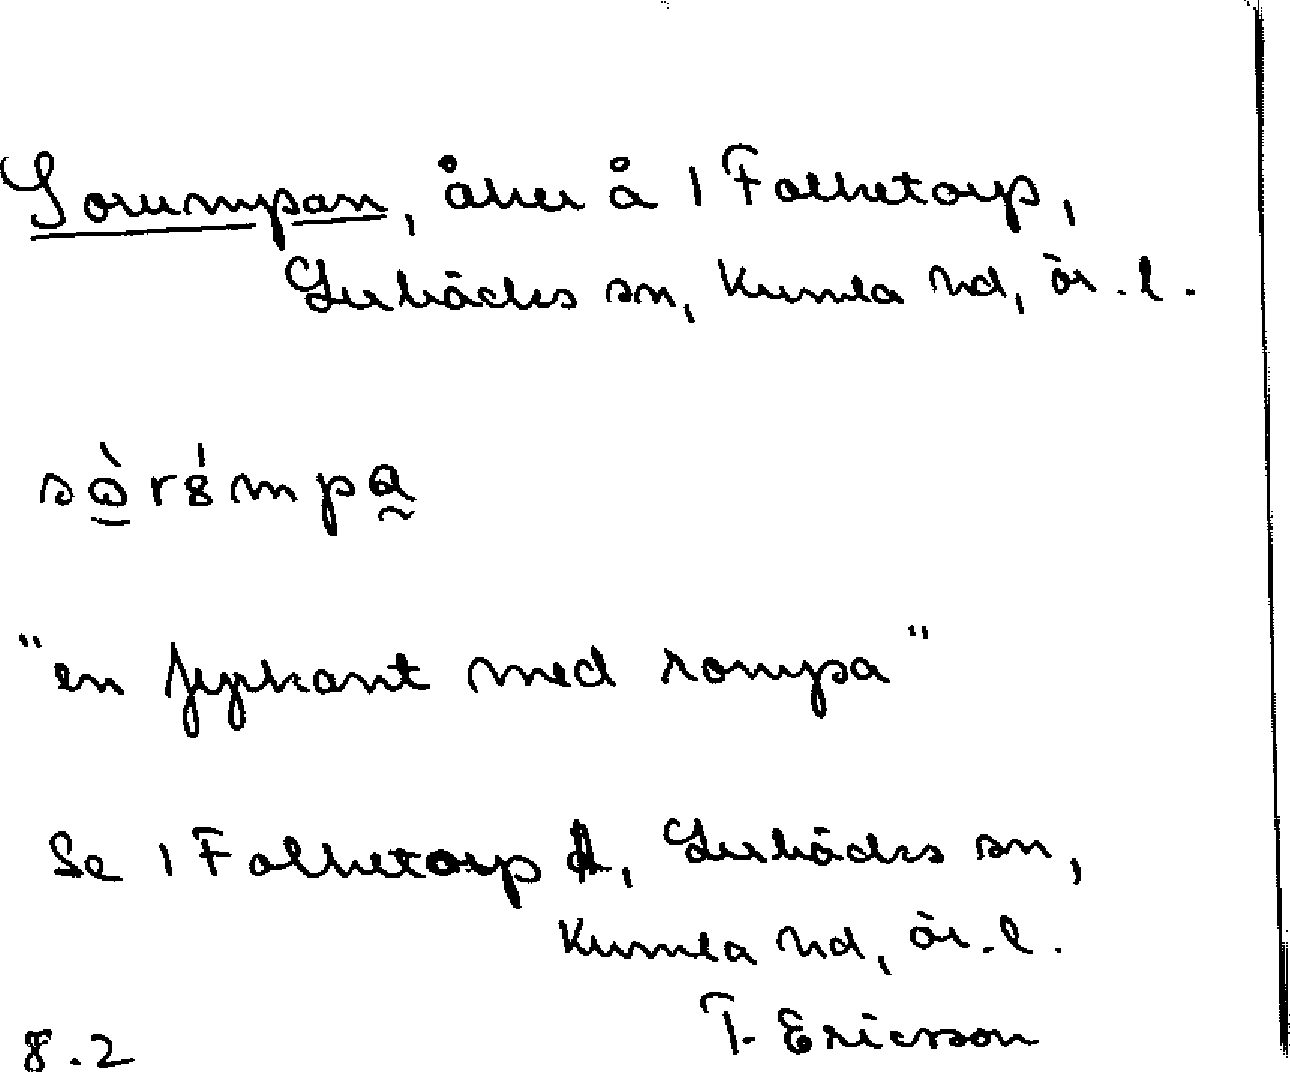 Sorumpan, åker å 1 Folketorp,
Lerbäcks sn, Kumla hd, ör.l.
sòrømpa
"en fyrkant med rompa"
Se 1 Folketorp A, Lerbäcks sn,
Kumla hd, ör.l.
T. Ericsson
8.2